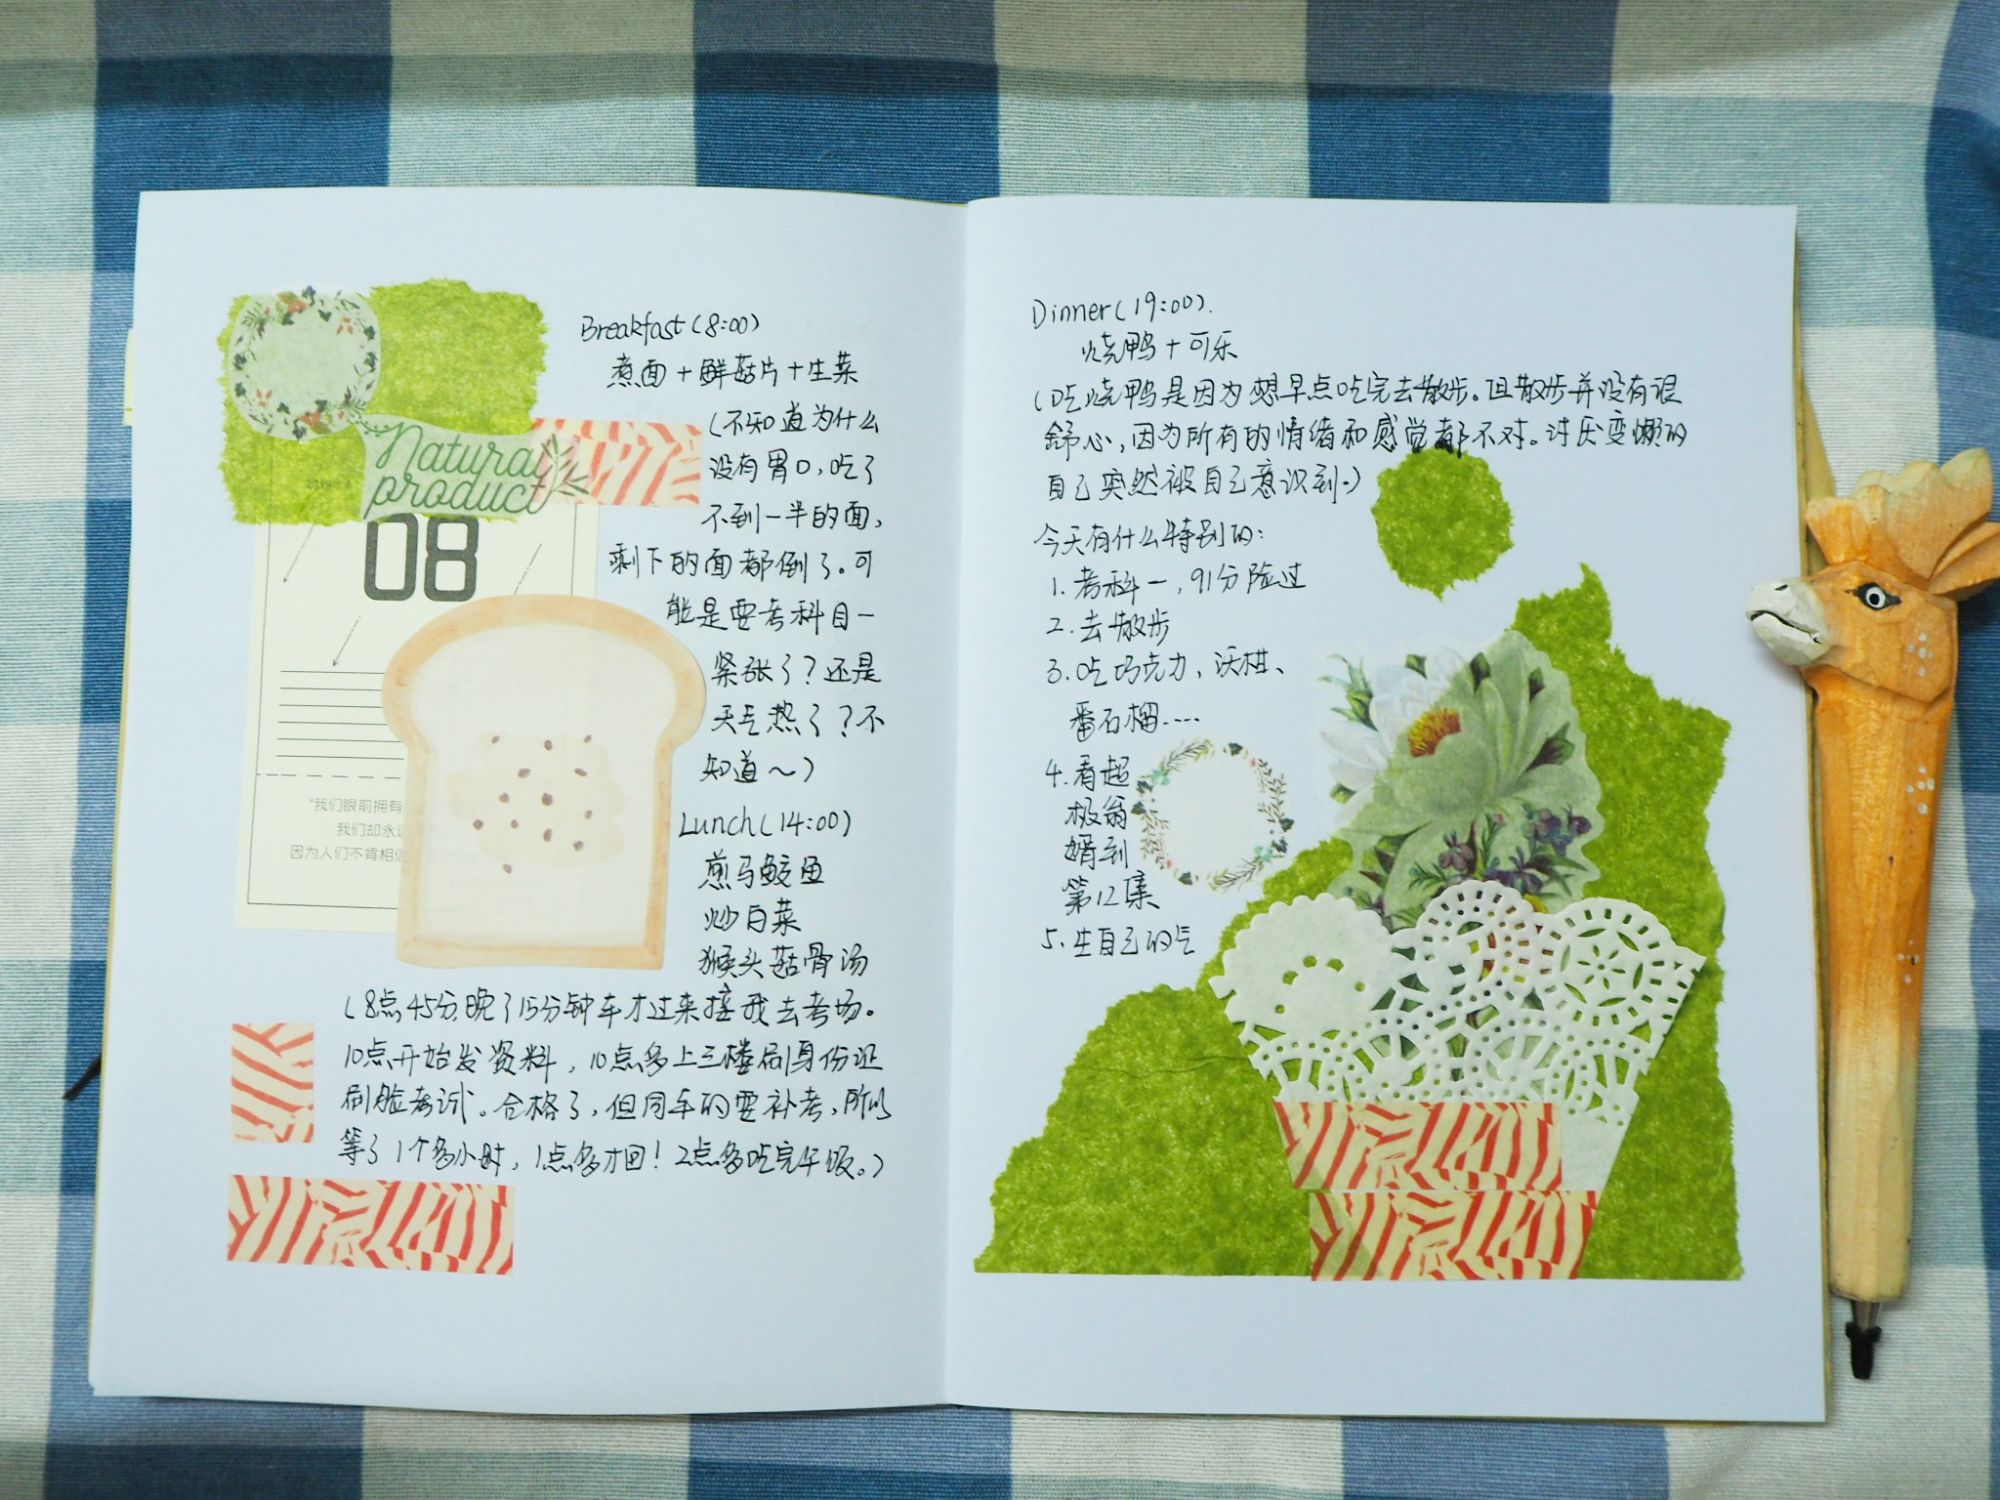 Natural
product
2019 · 4
08
"我们眼前拥有
我们却永远
因为人们不肯相信
Breakfast(8:00)
煮面+鲜菇片+生菜
(不知道为什么
没有胃口,吃了
不到一半的面,
剩下的面都倒了。可
能是要考科目一
紧张了?还是
天气热了?不
知道~)
Lunch(14:00)
煎马鲛鱼
炒白菜
猴头菇骨汤
(8点45分,晚了15分钟车才过来接我去考场。
10点开始发资料,10点多上三楼刷身份证
刷脸考试。合格了,但同车的要补考,所以
等了1个多小时,1点多才回!2点多吃完午饭。)
Dinner(19:00).
烧鸭+可乐
(吃烧鸭是因为想早点吃完去散步。但散步并没有很
舒心,因为所有的情绪和感觉都不对。讨厌变懒的
自己突然被自己意识到。)
今天有什么特别的:
1.考科一,91分险过
2.去散步
3.吃巧克力、沃柑、
番石榴....
4.看超
极翁
婿到
第12集
5.生自己的气